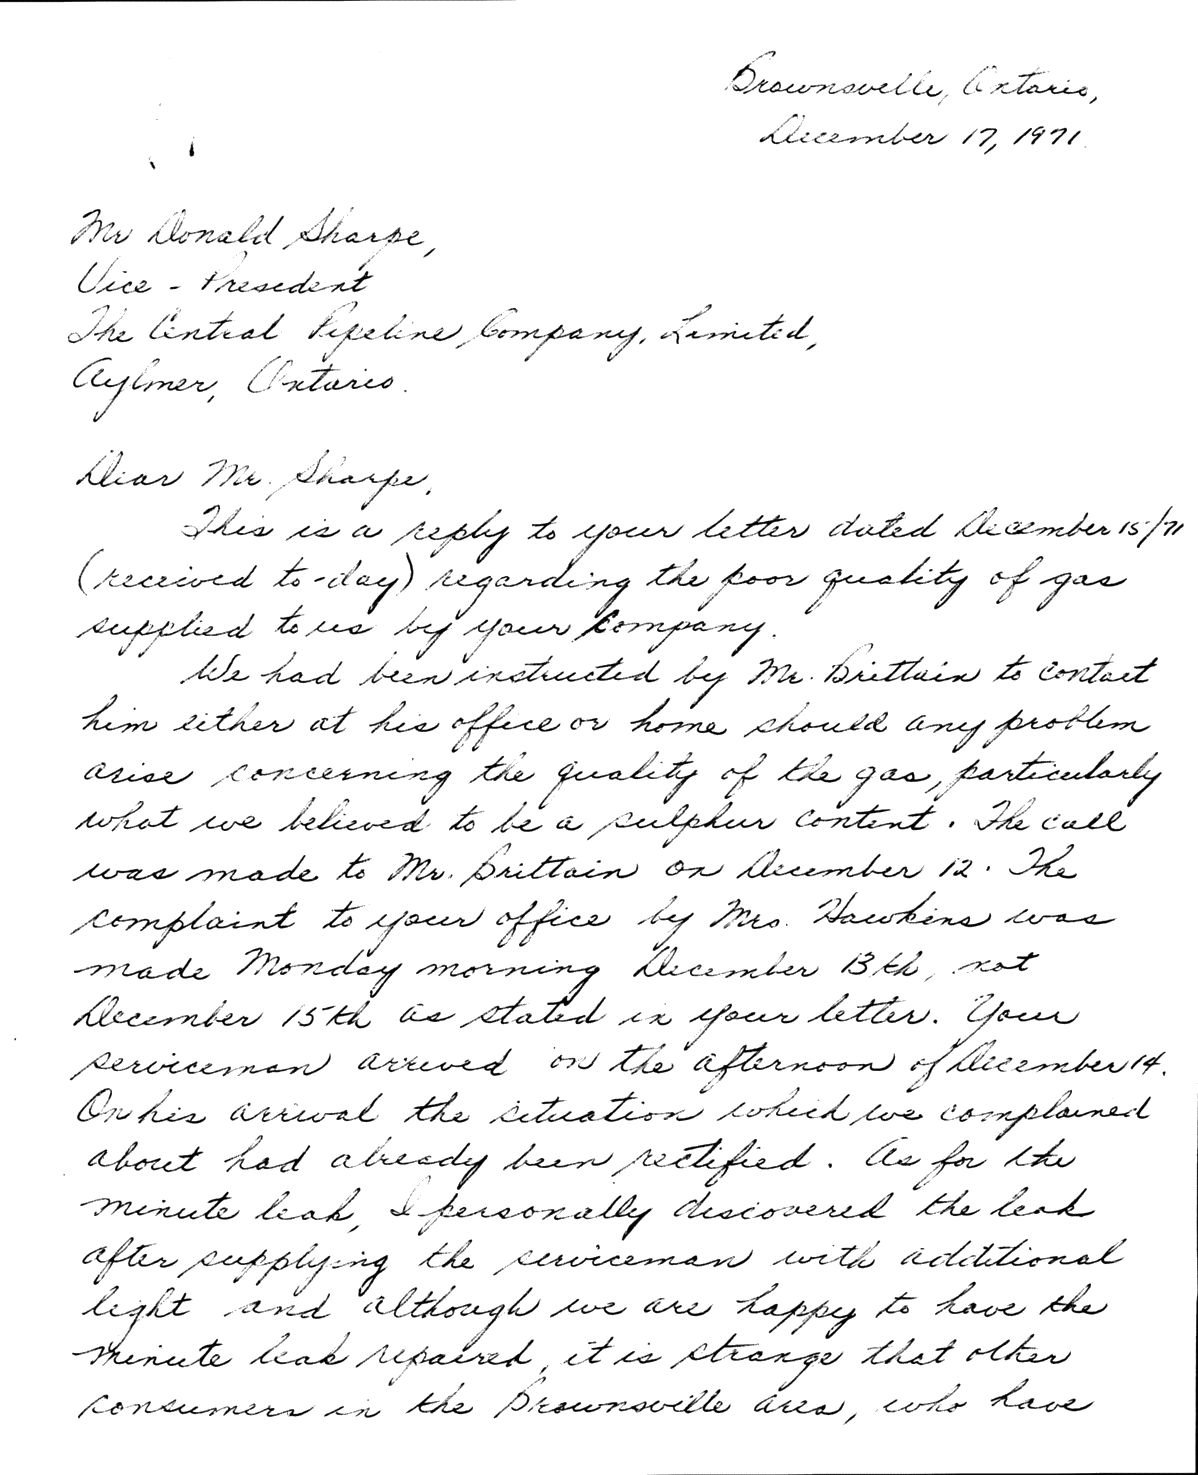 Brownsville, Ontario,
December 17, 1971.
Mr Donald Sharpe,
Vice - President
The Central Pipeline Company, Limited,
Aylmer, Ontario.
Dear Mr. Sharpe,
This is a reply to your letter dated December 15/71
(received to-day) regarding the poor quality of gas
supplied to us by your Company.
We had been instructed by Mr. Brittain to contact
him either at his office or home should any problem
arise concerning the quality of the gas, particularly
what we believed to be a sulphur content. The call
was made to Mr. Brittain on December 12. The
complaint to your office by Mrs. Hawkins was
made Monday morning December 13th, not
December 15th as stated in your letter. Your
serviceman arrived on the afternoon of December 14.
On his arrival the situation which we complained
about had already been rectified. As for the
minute leak, I personally discovered the leak
after supplying the serviceman with additional
light and although we are happy to have the
minute leak repaired, it is strange that other
consumers in the Brownsville area, who have